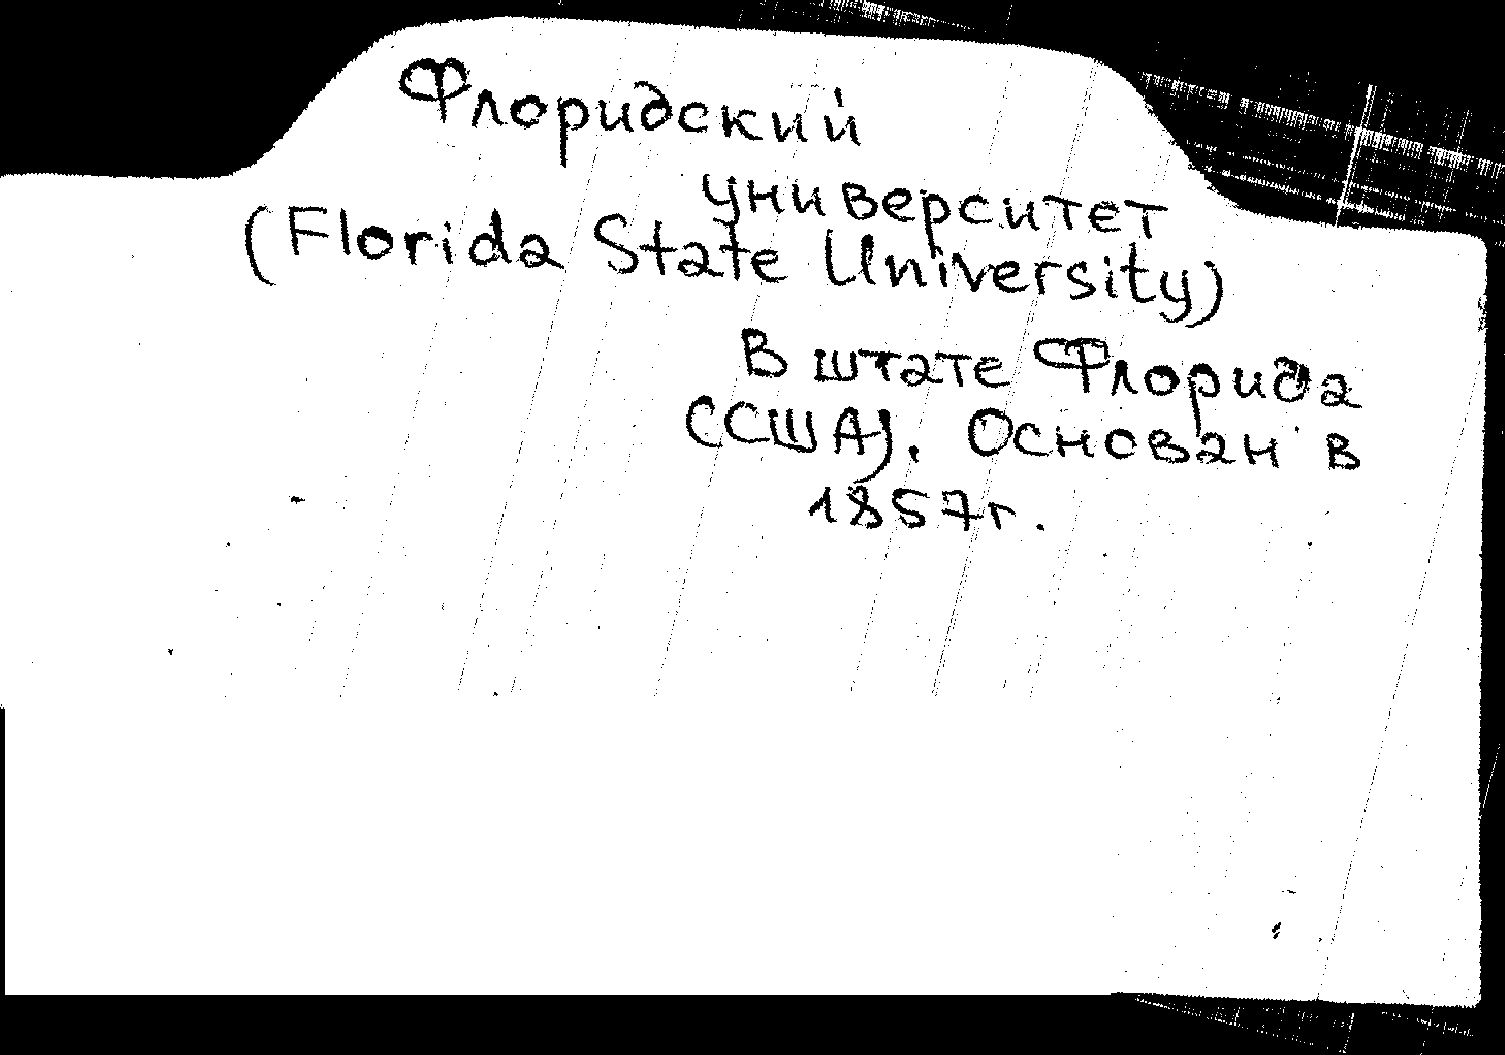 Флоридский
университет
(Florida State University)
В штате Флорида
(США). Основан в
1857г.